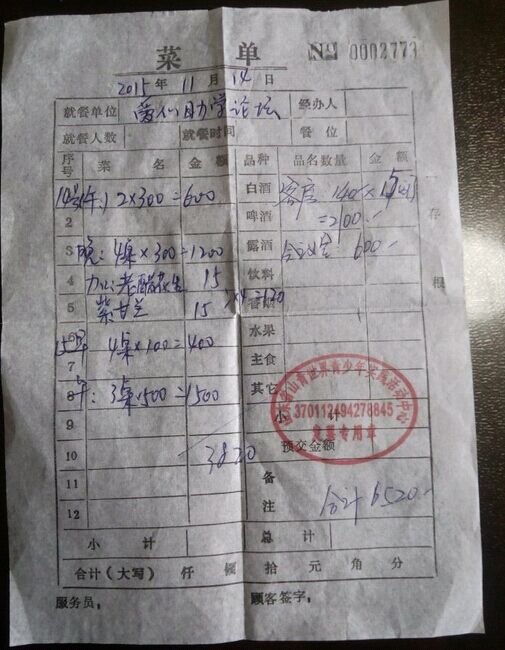 菜 单
№ 0002773
2015 年 11 月 14 日
就餐单位 爱心助学论坛 经办人
就餐人数 就餐时间 餐位
序号 菜 名 金 额 品种 品名数量 金 额
14号午: 2×300=600 白酒 客房 140×15间
2 啤酒 =2100.
3 晚: 4桌×300=1200 露酒 会议室: 600.
4 加: 老醋花生 15 饮料
5 紫甘兰 15 ×4=120
15早 4桌×100=400 水果
7 主食
8 午: 3桌×500=1500 其它
9 小 计
10 3820 预交金额
11 备
12 注 合计6520.
小 计 总 计
合计(大写) 仟 佰 拾 元 角 分
服务员: 顾客签字:
存根
370112494278845
发票专用章